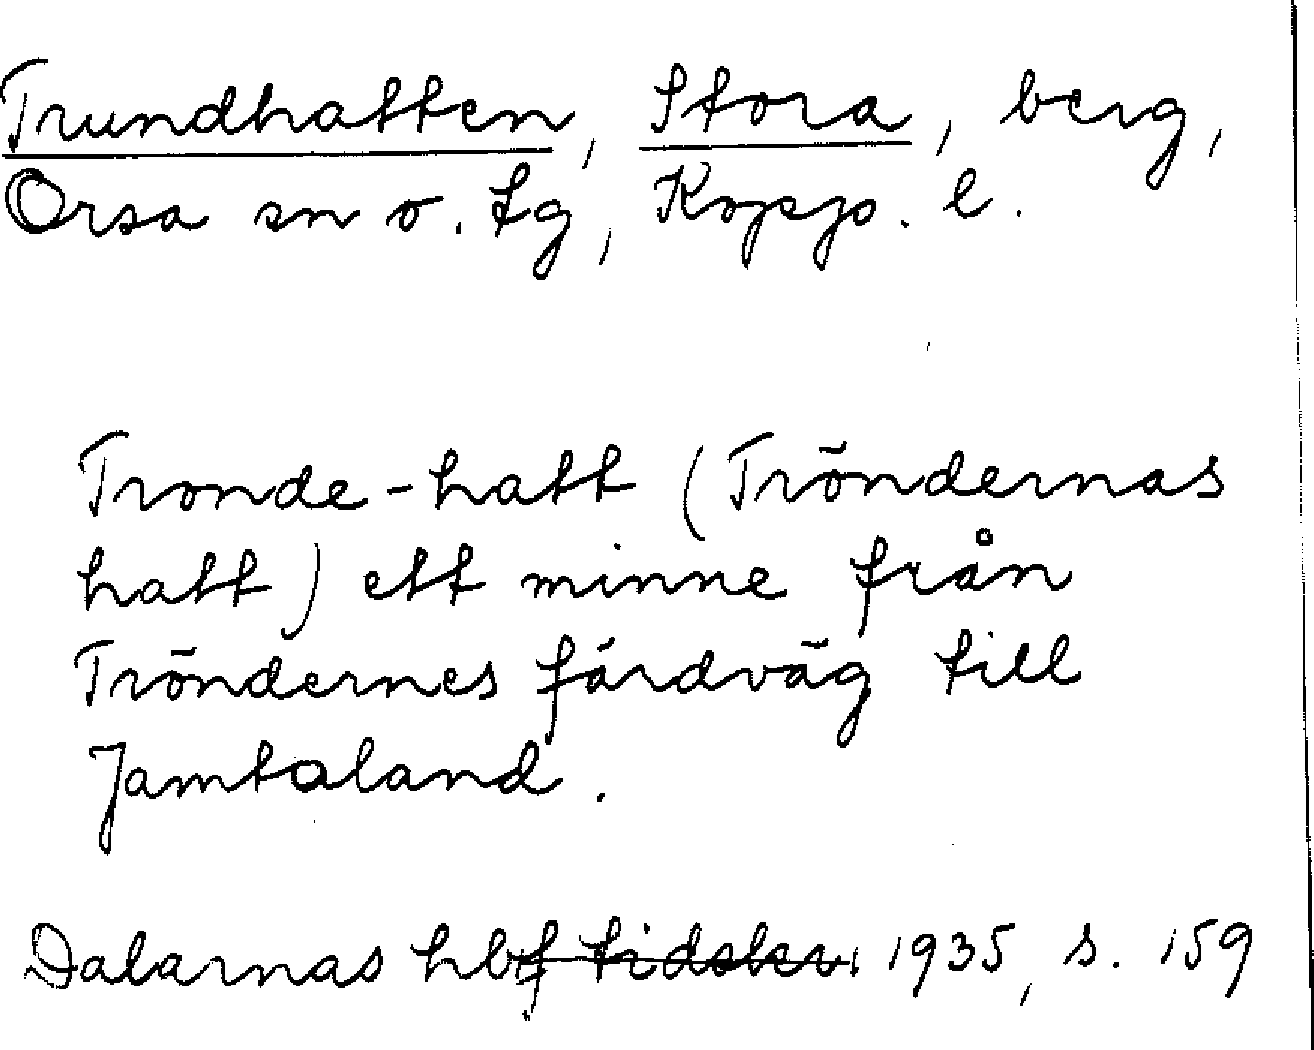 Trundhatten, Stora, berg,
Orsa sn o. tg, Kopp. l.
Tronde-hatt (Tröndernas
hatt) ett minne från
Tröndernes färdväg till
Jamtaland.
Dalarnas hbf tidskr. 1935, s. 159